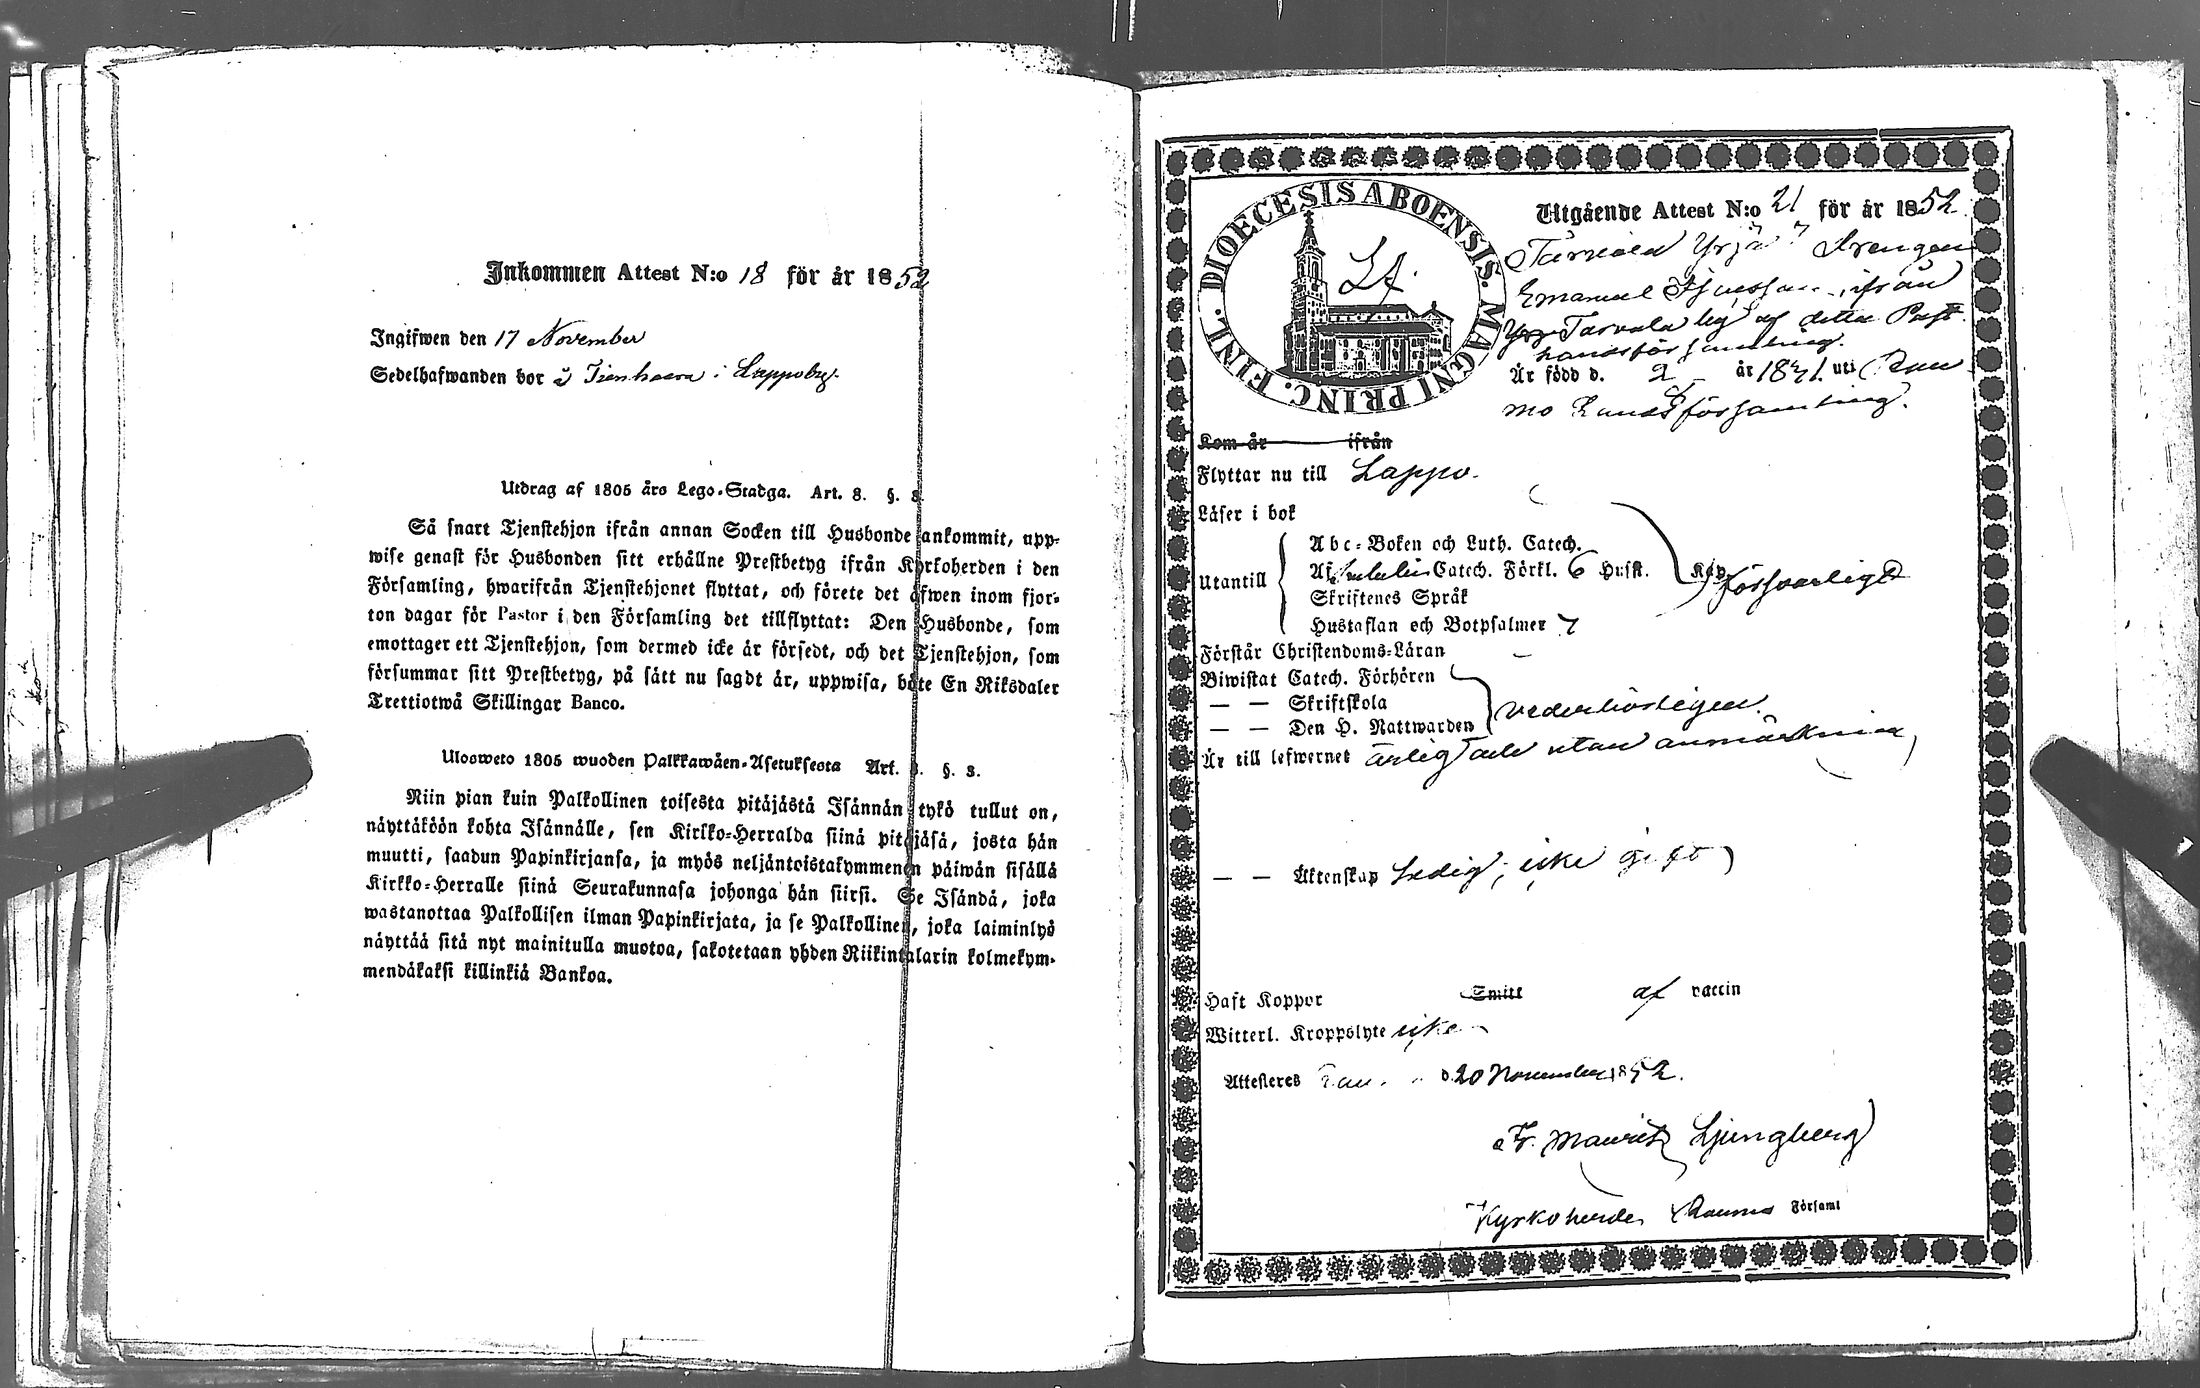 Inkommen Attest N:o 18 för år 1852
Ingifwen den 17 November
Sedelhafwanden bor i Tienhaara i Lappoby.
Utdrag af 1805 års Lego-Stadga. Art. 8. §. 3.
Så snart Tjenstehjon ifrån annan Socken till Husbonde ankommit, upp-
wise genast för Husbonden sitt erhållne Prestbetyg ifrån Kyrkoherden i den
Församling, hwarifrån Tjenstehjonet flyttat, och förete det äfwen inom fjor-
ton dagar för Pastor i den Församling det tillflyttat: Den Husbonde, som
emottager ett Tjenstehjon, som dermed icke är försedt, och det Tjenstehjon, som
försummar sitt Prestbetyg, på sätt nu sagdt är, uppwisa, böte En Riksdaler
Trettiotwå Skillingar Banco.
Ulosweto 1805 wuoden Palkkawäen-Asetuksesta Art. §. 3.
Niin pian kuin Palkollinen toisesta pitäjästä Isännän tykö tullut on,
näyttäköön kohta Isännälle, sen Kirkko-Herralda siinä pitäjäsä, josta hän
muutti, saadun Papinkirjansa, ja myös neljäntoistakymmenen päiwän sisällä
Kirkko-Herralle siinä Seurakunnasa johonga hän siirsi. Se Isändä, joka
wastanottaa Palkollisen ilman Papinkirjata, ja se Palkollinen, joka laiminlyö
näyttää sitä nyt mainitulla muotoa, sakotetaan yhden Riikintalarin kolmekym-
mendäkaksi killinkiä Bankoa.
DIOECESIS ABOENSIS. MAGNI PRINC. FINL.
Utgående Attest N:o 21 för år 1852
Yrjä Drengen
Emanuel ifrån
Tarvala by af detta Past
landsförsamling.
Är född d. 2 år 1831. uti Rau
mo Landsförsamling.
Kom år ifrån
Flyttar nu till Lappo.
Läser i bok
Utantill
Abc-Boken och Luth. Catech.
Af Catech. Förkl. 6 Husst. försvarligt
Skriftenes Språk
Hustaflan och Botpsalmer 7
Förstår Christendoms-Läran
Biwistat Catech. Förhören
— — Skriftskola
— — Den H. Nattwarden vederbörligen.
Är till lefwernet ärlig och utan anmärkning
— — Äktenskap Ledig, icke gift
Haft Koppor Smitt af vaccin
Witterl. Kroppslyte icke
Attesteres d. 20 November 1852.
Fr. Mauritz Ljungberg
Kyrkoherde Raumo Församl